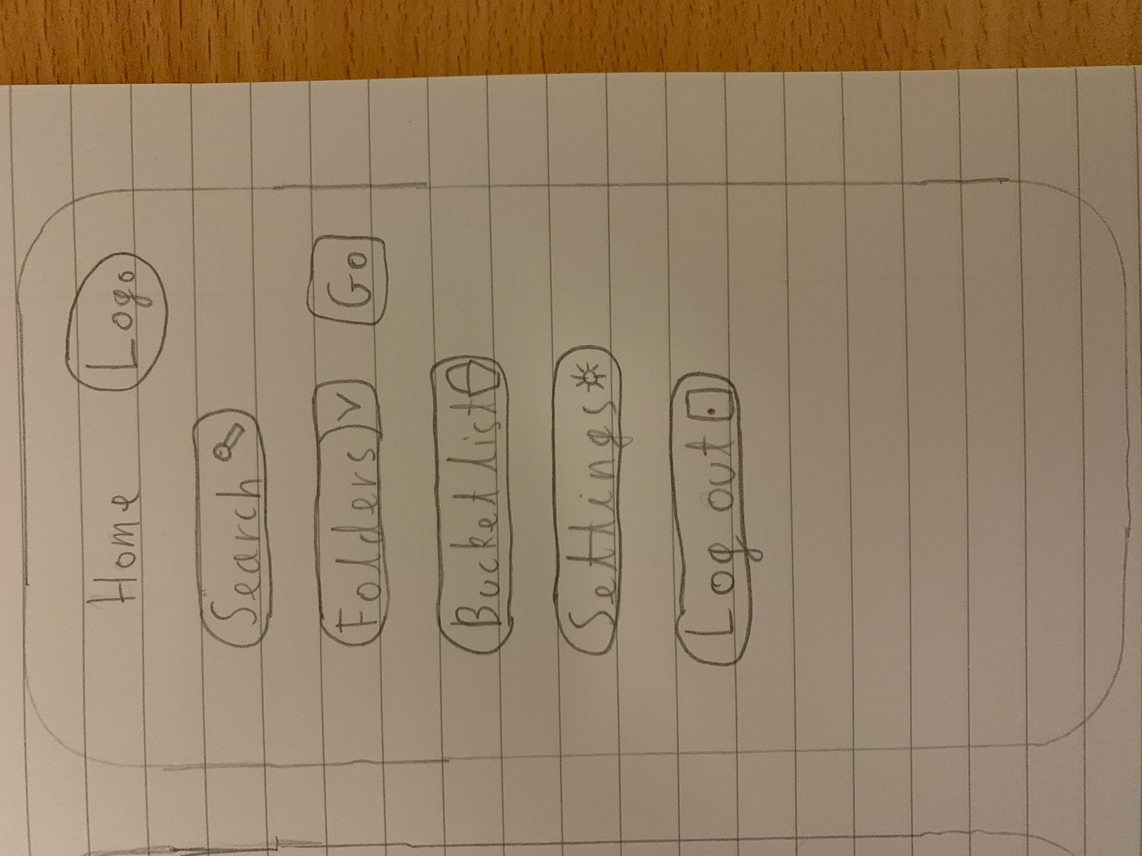 Home Logo
Search
Folders Go
Bucketlist
Settings
Log out